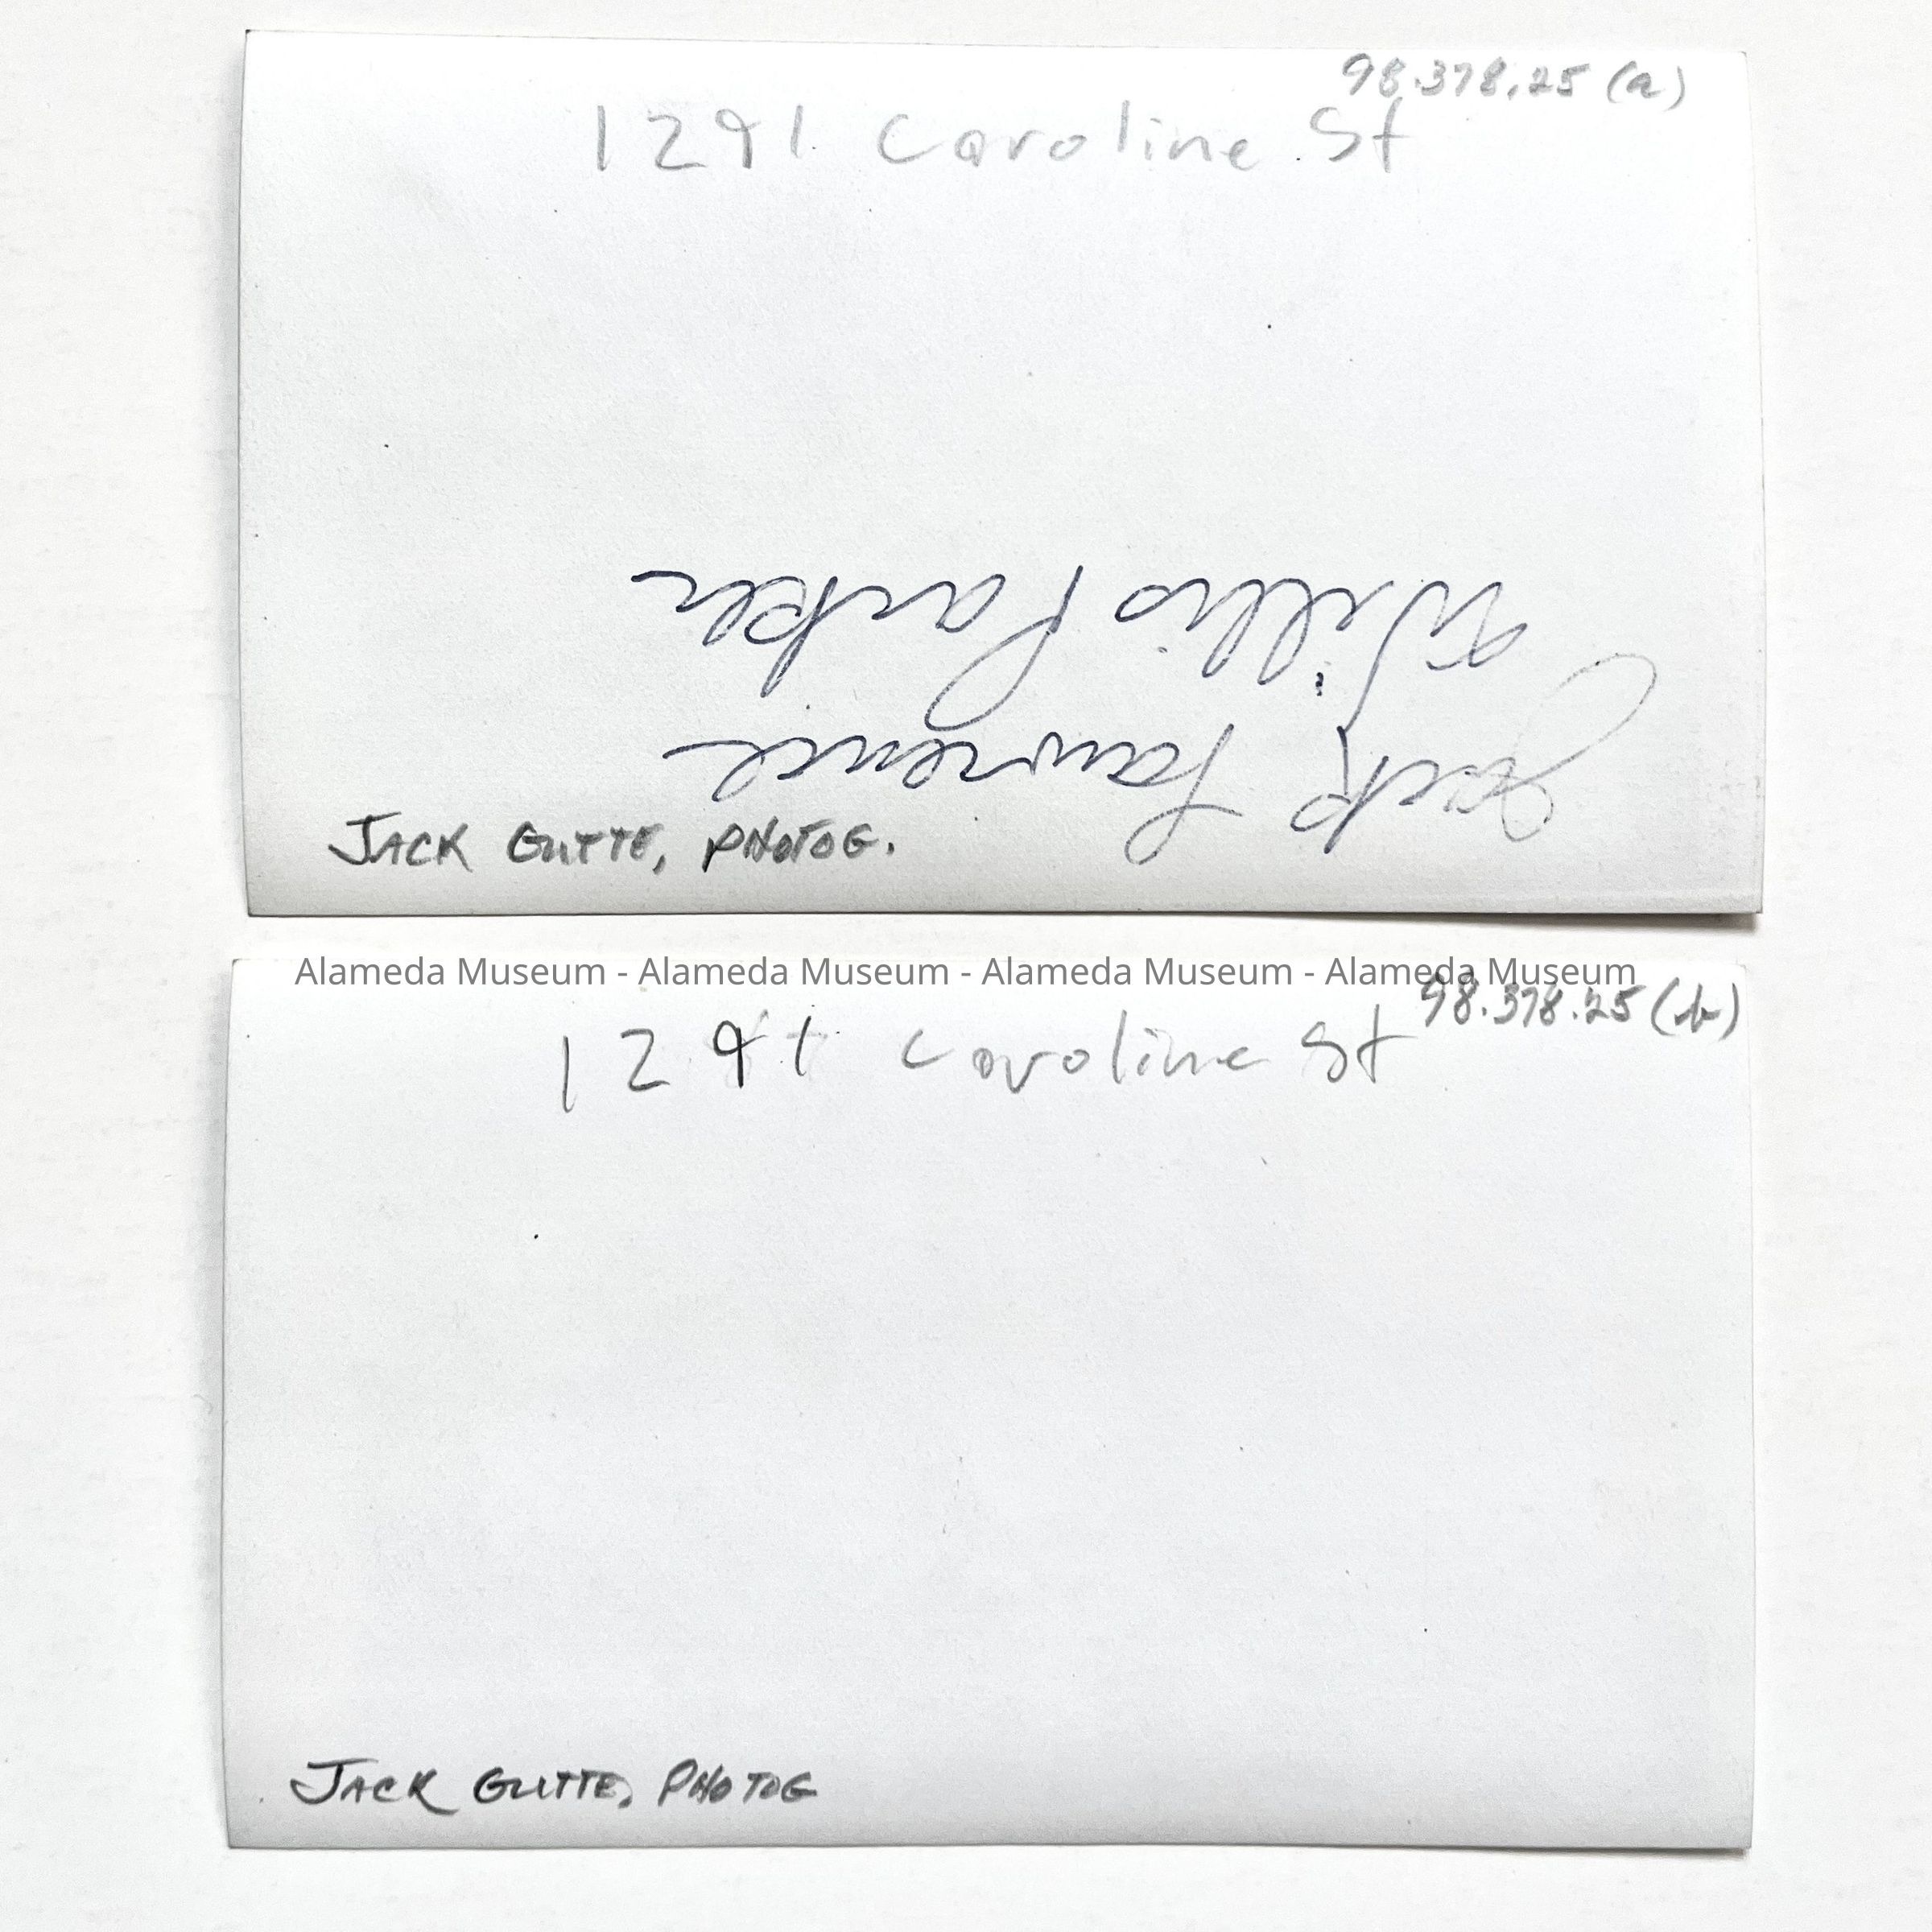 98.378.25 (a)
1291 Caroline St
Jack Lawrence
Willis Parker
JACK GUTTE, PHOTOG.
Alameda Museum - Alameda Museum - Alameda Museum - Alameda Museum
98.378.25 (b)
1291 Caroline St
JACK GUTTE, PHOTOG